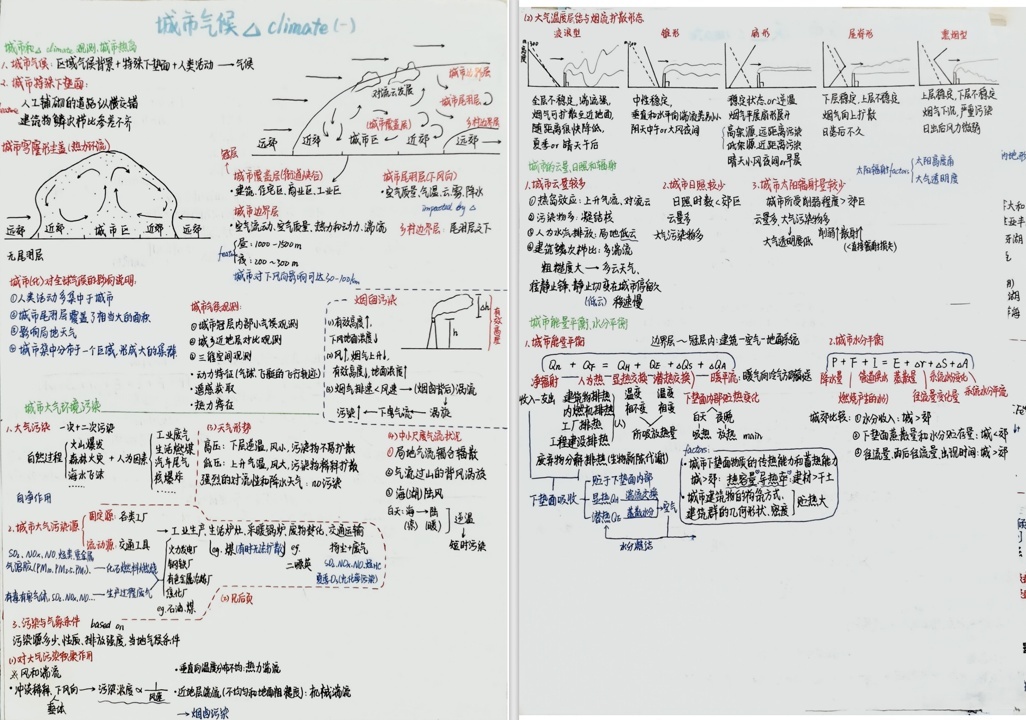 城市气候 △ climate (一)
城市和△climate观测,城市热岛
1. 城市气候: 区域气候背景+特殊下垫面+人类活动→气候
2. 城市特殊下垫面:
人工铺砌的道路纵横交错
建筑物鳞次栉比参差不齐
城市穹窿形尘盖(热力环流)
远郊 近郊 城市区 近郊 远郊
无尾羽层
对流云发展
城市边界层
城市尾羽层
(城市覆盖层)
乡村边界层
远郊 近郊 城市区 近郊 远郊
冠层
城市覆盖层(街道峡谷)
·建筑,住宅区,商业区,工业区
城市尾羽层(下风向)
·空气质量,气温,云雾,降水
城市边界层
impacted by △
·空气流动,空气质量,热力和动力,湍流
乡村边界层: 尾羽层之下
昼: 1000~1500m
夜: 200~300m
城市对下风向影响可达50~100km
城市(化)对全球气候的影响说明:
①人类活动多集中于城市
②城市尾羽层覆盖了相当大的面积
③影响局地天气
④城市集中分布于一个区域,形成大的集群
城市气候观测:
①城市冠层内部小气候观测
②城乡近地层对比观测
③三维空间观测
·动力特征(气球,飞艇的飞行轨迹)
·遥感获取
·热力特征
烟囱污染
(1)有效高度↑,
下风地面浓度↓
(2)风↑,烟气上升↓,
有效高度↓,地面浓度↑
(3)烟气排速<风速→(烟囱背后)涡流
污染↑←下曳气流←涡旋
h
△h
有效高度
城市大气环境污染
1. 大气污染 一次+二次污染
自然过程
火山爆发
森林火灾
海水飞沫
……
+人为因素
工业废气
生活燃煤
汽车尾气
核爆炸
……
自净作用
(3)天气形势
高压: 下层逆温,风小,污染物不易扩散
低压: 上升气流,风大,污染物易稀释扩散
强烈的对流性和降水天气: no污染
(4)中小尺度气流状况
①局地气流辐合辐散
②气流过山的背风涡旋
③海(湖)陆风
白天: 海→陆
逆温
短时污染
2. 城市大气污染源
固定源: 各类工厂
流动源: 交通工具
→工业生产,生活炉灶,采暖锅炉,废物焚化,交通运输
气溶胶(PM₁₀,PM₂.₅,PM₁)—化石燃料燃烧
有毒有害气体,SO₂,NOx,NO…—生产过程废气
火力发电厂
钢铁厂
有色金属冶炼厂
焦化厂
eg. 石油,煤
eg. 煤(有时无法扩散)
eg.
二噁英
扬尘+废气
(2)见后页
3. 污染与气象条件 based on
污染源多少,性质,排放强度,当地气候条件
(1)对大气污染积聚作用
※风和湍流
·冲淡稀释,下风向→污染浓度∝1/风速
整体
·垂直向温度分布不均: 热力湍流
·近地层湍流(不均匀和地面粗糙度): 机械湍流
→烟囱污染
(2)大气温度层结与烟流扩散形态
波浪型 锥形 扇形 屋脊形 熏烟型
全层不稳定,湍流强,
烟气可扩散至近地面,
随距离很快降低,
夏季or晴天午后
中性稳定,
垂直和水平向湍流差别小
阴天中午or大风夜间
稳定状态or逆温
烟气平展扇形展开
高架源,远距离污染
低架源,近距离污染
晴天小风夜间or早晨
下层稳定,上层不稳定
烟气向上扩散
日落后不久
上层稳定,下层不稳定
烟气下沉,严重污染
日出后风力微弱
城市的云量,日照和辐射
太阳辐射factors
太阳高度角
大气透明度
1. 城市云量较多
①热岛效应: 上升气流,对流云
②污染物多: 凝结核
③人为水汽排放: 局地低云
④建筑鳞次栉比: 多湍流
粗糙度大→多云天气,
准静止锋,静止切变在城市停留久
(低云) 移速慢
2. 城市日照较少
日照时数<郊区
云量多
大气污染物多
3. 城市太阳辐射量较少
城市所受削弱程度>郊区
云量多,大气污染物多
大气透明度低
削弱↑散射↑
(<直接辐射损失)
城市能量平衡,水分平衡
1. 城市能量平衡 边界层~冠层内: 建筑—空气—地面系统
Qn + QF = QH + QE + △QS + △QA
净辐射 人为热 显热交换 潜热交换 →暖平流: 暖气向冷气团输送
收入-支出
建筑物排热
内燃机排热
工厂排热
工程建设排热
废弃物分解排热(生物新陈代谢)
温变
相不变
温变
相变
所吸放热量
下垫面内部贮热变化
白天 夜晚
吸热 放热 main.
下垫面吸收
贮于下垫面内部
显热QH 湍流交换
潜热QE 蒸散水分
空气
水分凝结
factors:
·城市下垫面物质的传热能力和蓄热能力
城>郊: 热容量,导热率,建材>干土
·城市建筑物的构筑方式,
建筑群的几何形状,密度
贮热大
2. 城市水分平衡
P + F + I = E + △r + △S + △A
降水量 管道供水 蒸散量
燃烧产生的(水) 径流量变化量
城郊比较: ①水分收入: 城>郊
②下垫面蒸散量和水分贮存量: 城<郊
③径流量,雨后径流量出现时间: 城>郊